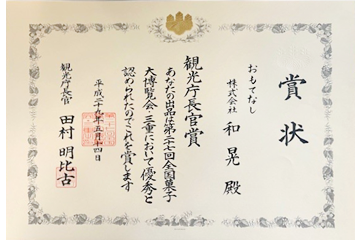 賞状
おもてなし
株式会社 和晃 殿
観光庁長官賞
あなたの出品は第二十七回全国菓子
大博覧会・三重において優秀と
認められたのでこれを賞します
平成二十九年五月十四日
観光庁長官 田村明比古